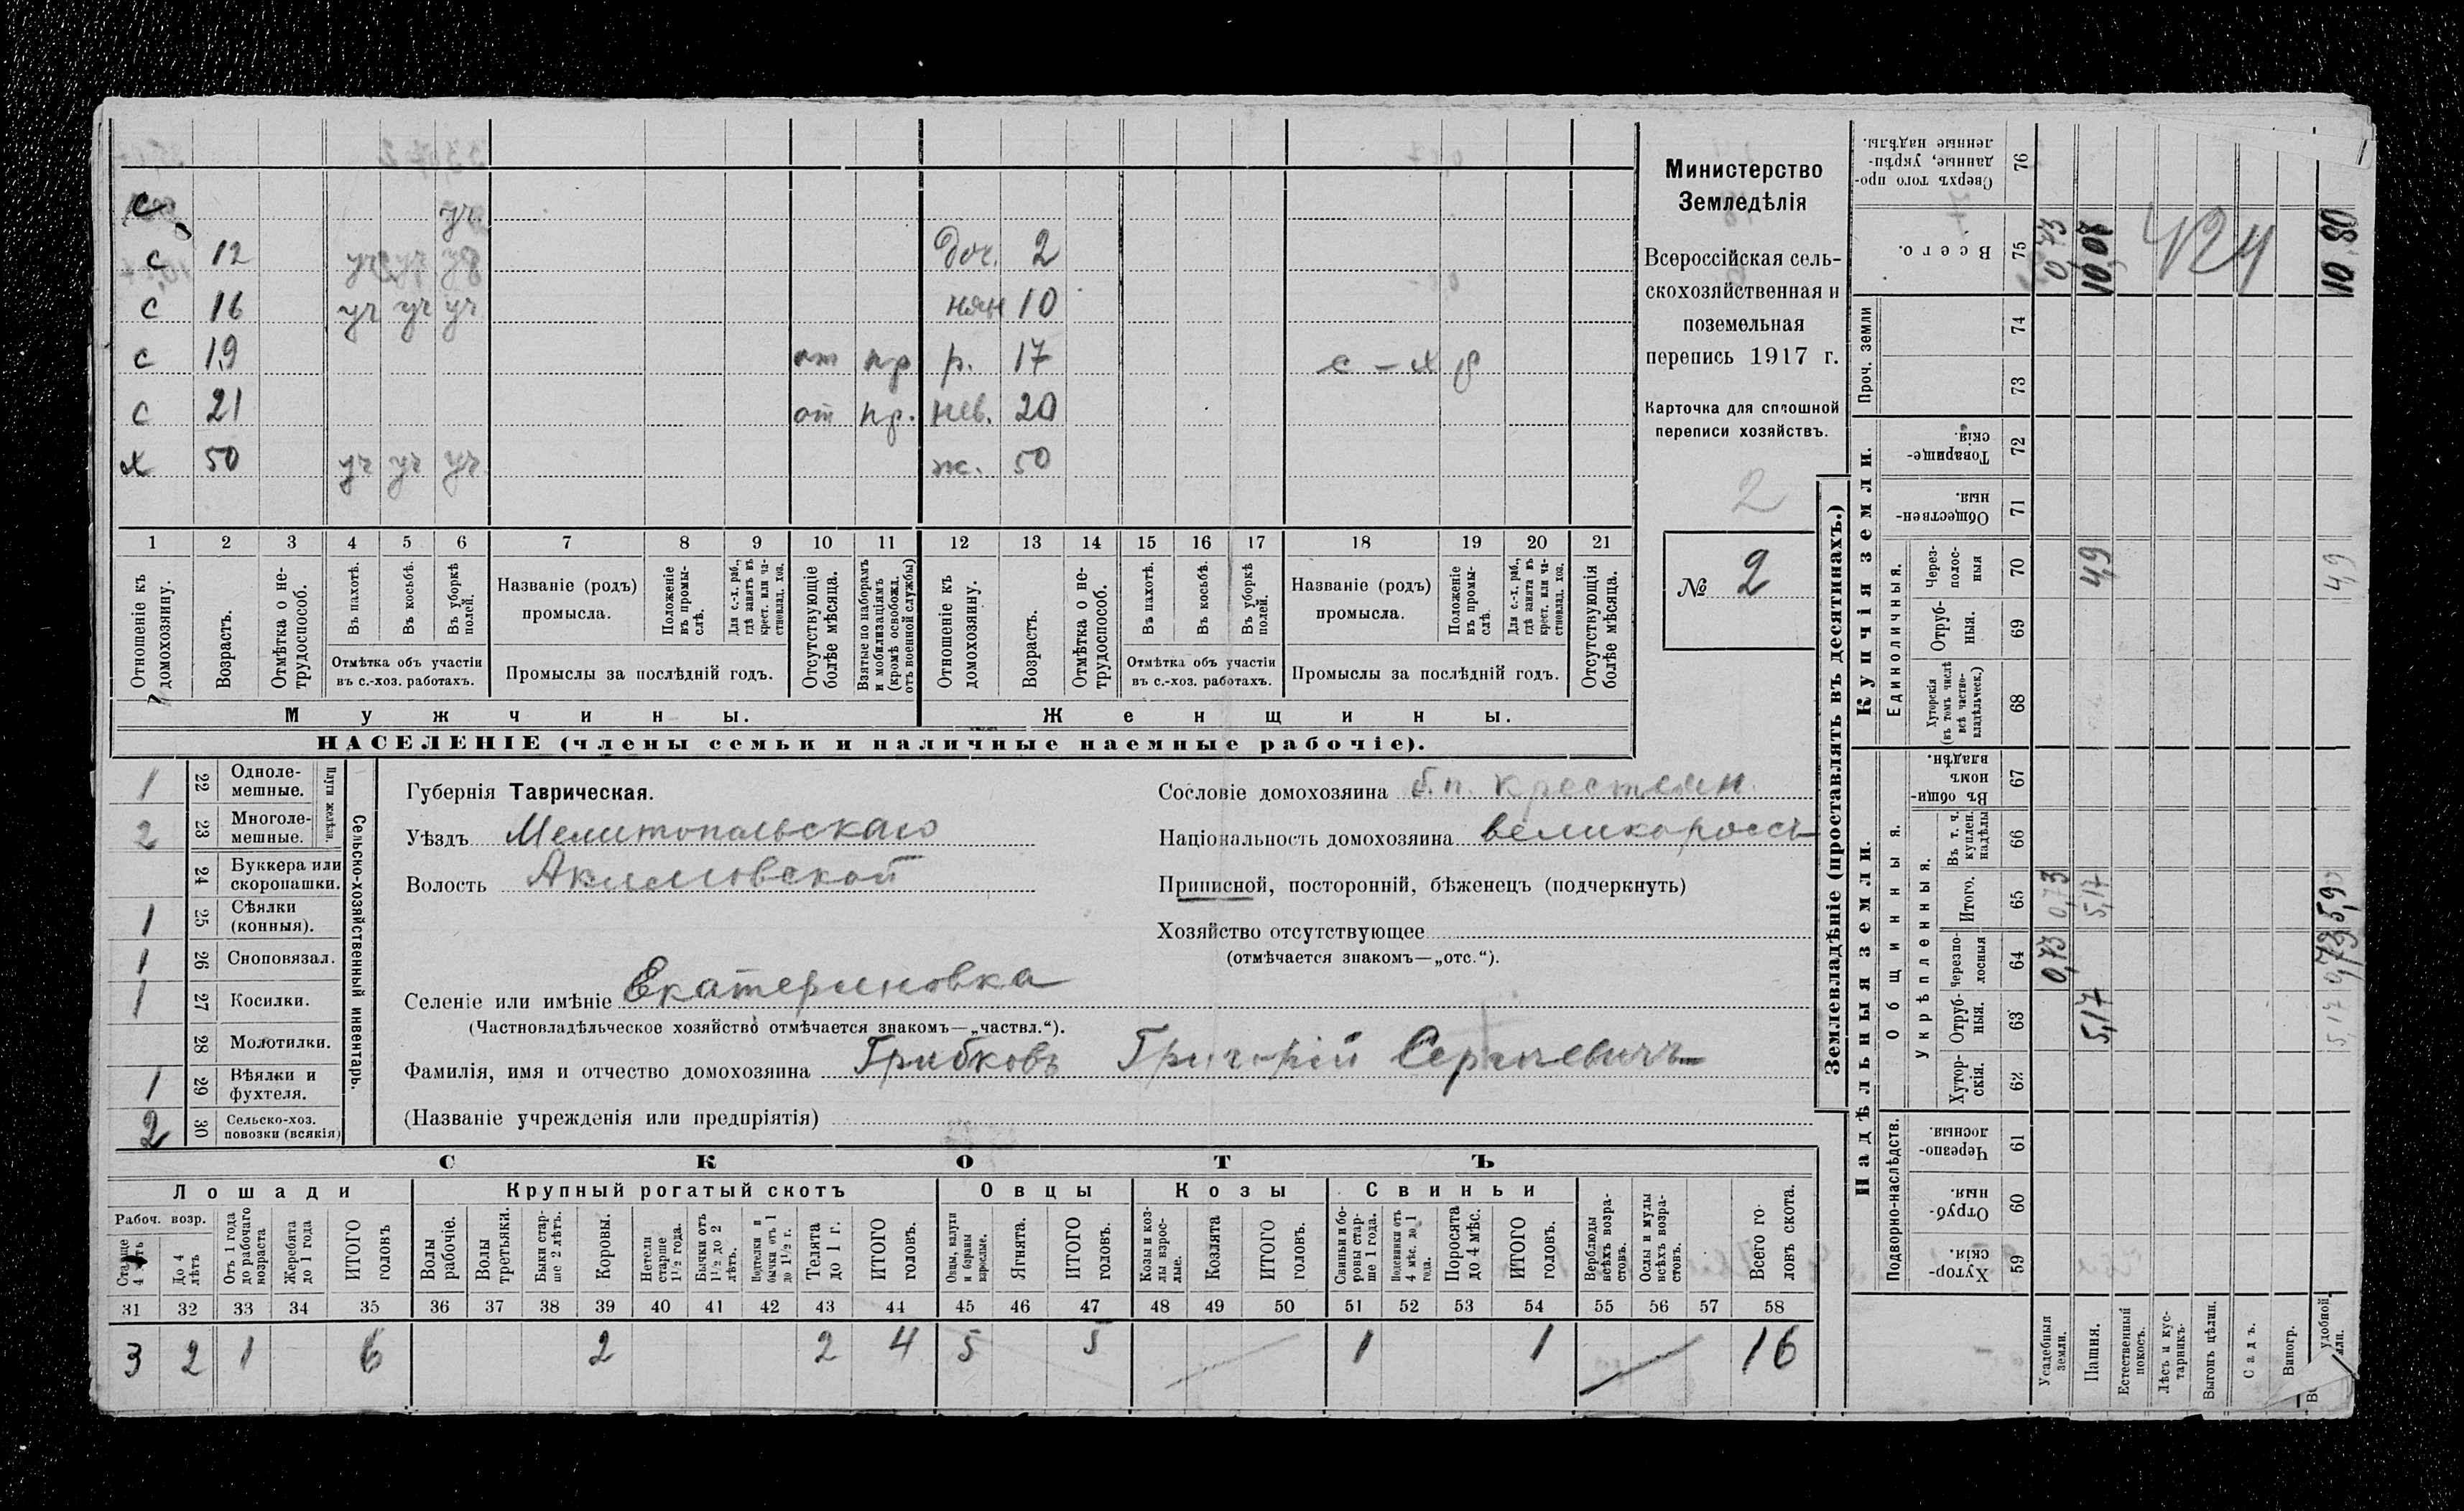 с уч
с 12 уч уч уч доч. 2
с 16 уч уч уч нян 10
с 19 от пр р. 17 с-х р
с 21 от пр. нев. 20
х 50 уч уч уч ж. 50
1 2 3 4 5 6 7 8 9 10 11 12 13 14 15 16 17 18 19 20 21
Отношеніе къ домохозяину.
Возрастъ.
Отмѣтка о не-
трудоспособ.
Въ пахотѣ.
Въ косьбѣ.
Въ уборкѣ полей.
Отмѣтка объ участіи
въ с.-хоз. работахъ.
Названіе (родъ)
промысла.
Положеніе въ промы-
слѣ.
Для с.-х. раб.,
гдѣ занятъ въ
крест. или ча-
стновлад. хоз.
Промыслы за послѣдній годъ.
Отсутствующіе
болѣе мѣсяца.
Взятые по наборамъ
и мобилизаціямъ
(кромѣ освобожд.
отъ военной службы)
Отношеніе къ
домохозяину.
Возрастъ.
Отмѣтка о не-
трудоспособ.
Въ пахотѣ.
Въ косьбѣ.
Въ уборкѣ
полей.
Отмѣтка объ участіи
въ с.-хоз. работахъ.
Названіе (родъ)
промысла.
Положеніе
въ промы-
слѣ
Для с.-х. раб.,
гдѣ занята въ
крест. или ча-
стновлад. хоз.
Промыслы за послѣдній годъ.
Отсутствующія
болѣе мѣсяца.
Мужчины.
Женщины.
НАСЕЛЕНІЕ (члены семьи и наличные наемные рабочіе).
Министерство
Земледѣлія
Всероссійская сель-
скохозяйственная и
поземельная
перепись 1917 г.
Карточка для сплошной
переписи хозяйствъ.
2
№ 2
1 22 Одноле-
мешные.
2 23 Многоле-
мешные.
Плуги желѣзн.
24 Буккера или
скоропашки.
1 25 Сѣялки
(конныя).
1 26 Сноповязал.
1 27 Косилки.
28 Молотилки.
1 29 Вѣялки и
фухтеля.
2 30 Сельско-хоз.
повозки (всякія)
Сельско-хозяйственный инвентарь.
Губернія Таврическая.
Уѣздъ Мелитопольскаго
Волость Акимовской
Сословіе домохозяина б.п. крестьян.
Національность домохозяина великороссъ
Приписной, посторонній, бѣженецъ (подчеркнуть)
Хозяйство отсутствующее
(отмѣчается знакомъ—„отс.“).
Селеніе или имѣніе Екатериновка
(Частновладѣльческое хозяйство отмѣчается знакомъ—„частвл.“).
Фамилія, имя и отчество домохозяина Грибковъ Григорій Сергѣевичъ
(Названіе учрежденія или предпріятія)
СКОТЪ
Лошади
Крупный рогатый скотъ
Овцы
Козы
Свиньи
Рабоч. возр.
Старше
4 лѣтъ
До 4
лѣтъ
Отъ 1 года
до рабочаго
возраста
Жеребята
до 1 года
ИТОГО
головъ
Волы
рабочіе.
Волы
третьяки.
Быки стар-
ше 2 лѣтъ.
Коровы.
Нетели
старше
1 1/2 года.
Бычки отъ
1 1/2 до 2
лѣтъ.
Подтелки и
бычки отъ 1
до 1 1/2 г.
Телята
до 1 г.
ИТОГО
головъ.
Овцы, валухи
и бараны
взрослые.
Ягнята.
ИТОГО
головъ.
Козы и коз-
лы взрос-
лые.
Козлята
ИТОГО
головъ.
Свиньи и бо-
ровы стар-
ше 1 года.
Подсвинки отъ
4 мѣс. до 1
года.
Поросята
до 4 мѣс.
ИТОГО
головъ.
Верблюды
всѣхъ возра-
стовъ.
Ослы и мулы
всѣхъ возра-
стовъ.
Всего го-
ловъ скота.
31 32 33 34 35 36 37 38 39 40 41 42 43 44 45 46 47 48 49 50 51 52 53 54 55 56 57 58
3 2 1 6 2 2 4 5 5 1 1 16
Землевладѣніе (проставлять въ десятинахъ.)
Надѣльныя земли.
Купчія земли.
Проч. земли
Подворно-наслѣдств.
Общинныя.
Укрѣпленныя.
Единоличныя.
Хутор-
скія. 59
Отруб-
ныя. 60
Черезпо-
лосныя. 61
Хутор-
скія. 62
Отруб-
ныя. 63
Черезпо-
лосныя 64
Итого. 65
Въ т. ч.
куплен.
надѣлы 66
Въ общи-
номъ
владѣн. 67
Хуторскія
(въ томъ числѣ
всѣ частно-
владѣльческ.) 68
Отруб-
ныя. 69
Через-
полос-
ныя 70
Обществен-
ныя. 71
Товарище-
скія. 72
73
74
Всего. 75
Сверхъ того про-
данные, укрѣп-
ленные надѣлы. 76
Усадебныя
земли. 0,73 0,73 0,73
Пашня. 5,17 5,17 4,9 10,07
Естественный
покосъ.
Лѣсъ и кус-
тарникъ.
Выгонъ цѣлин.
Садъ.
Виногр.
удобной
5,17 0,73 5,9 4,9 10,80
424